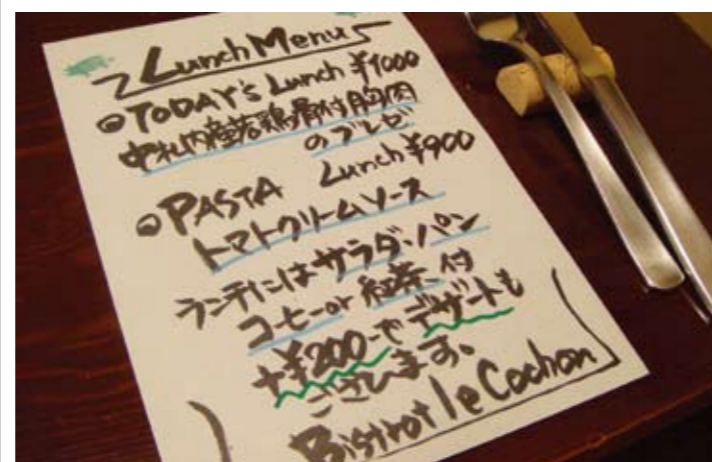 Lunch Menu
●TODAY'S Lunch ¥1000
中札内産若鶏骨付胸肉
のブレゼ
●PASTA Lunch ¥900
トマトクリームソース
ランチにはサラダ・パン
コーヒーor紅茶付
+¥200-でデザートも
ございます。
Bistrot le Cochon